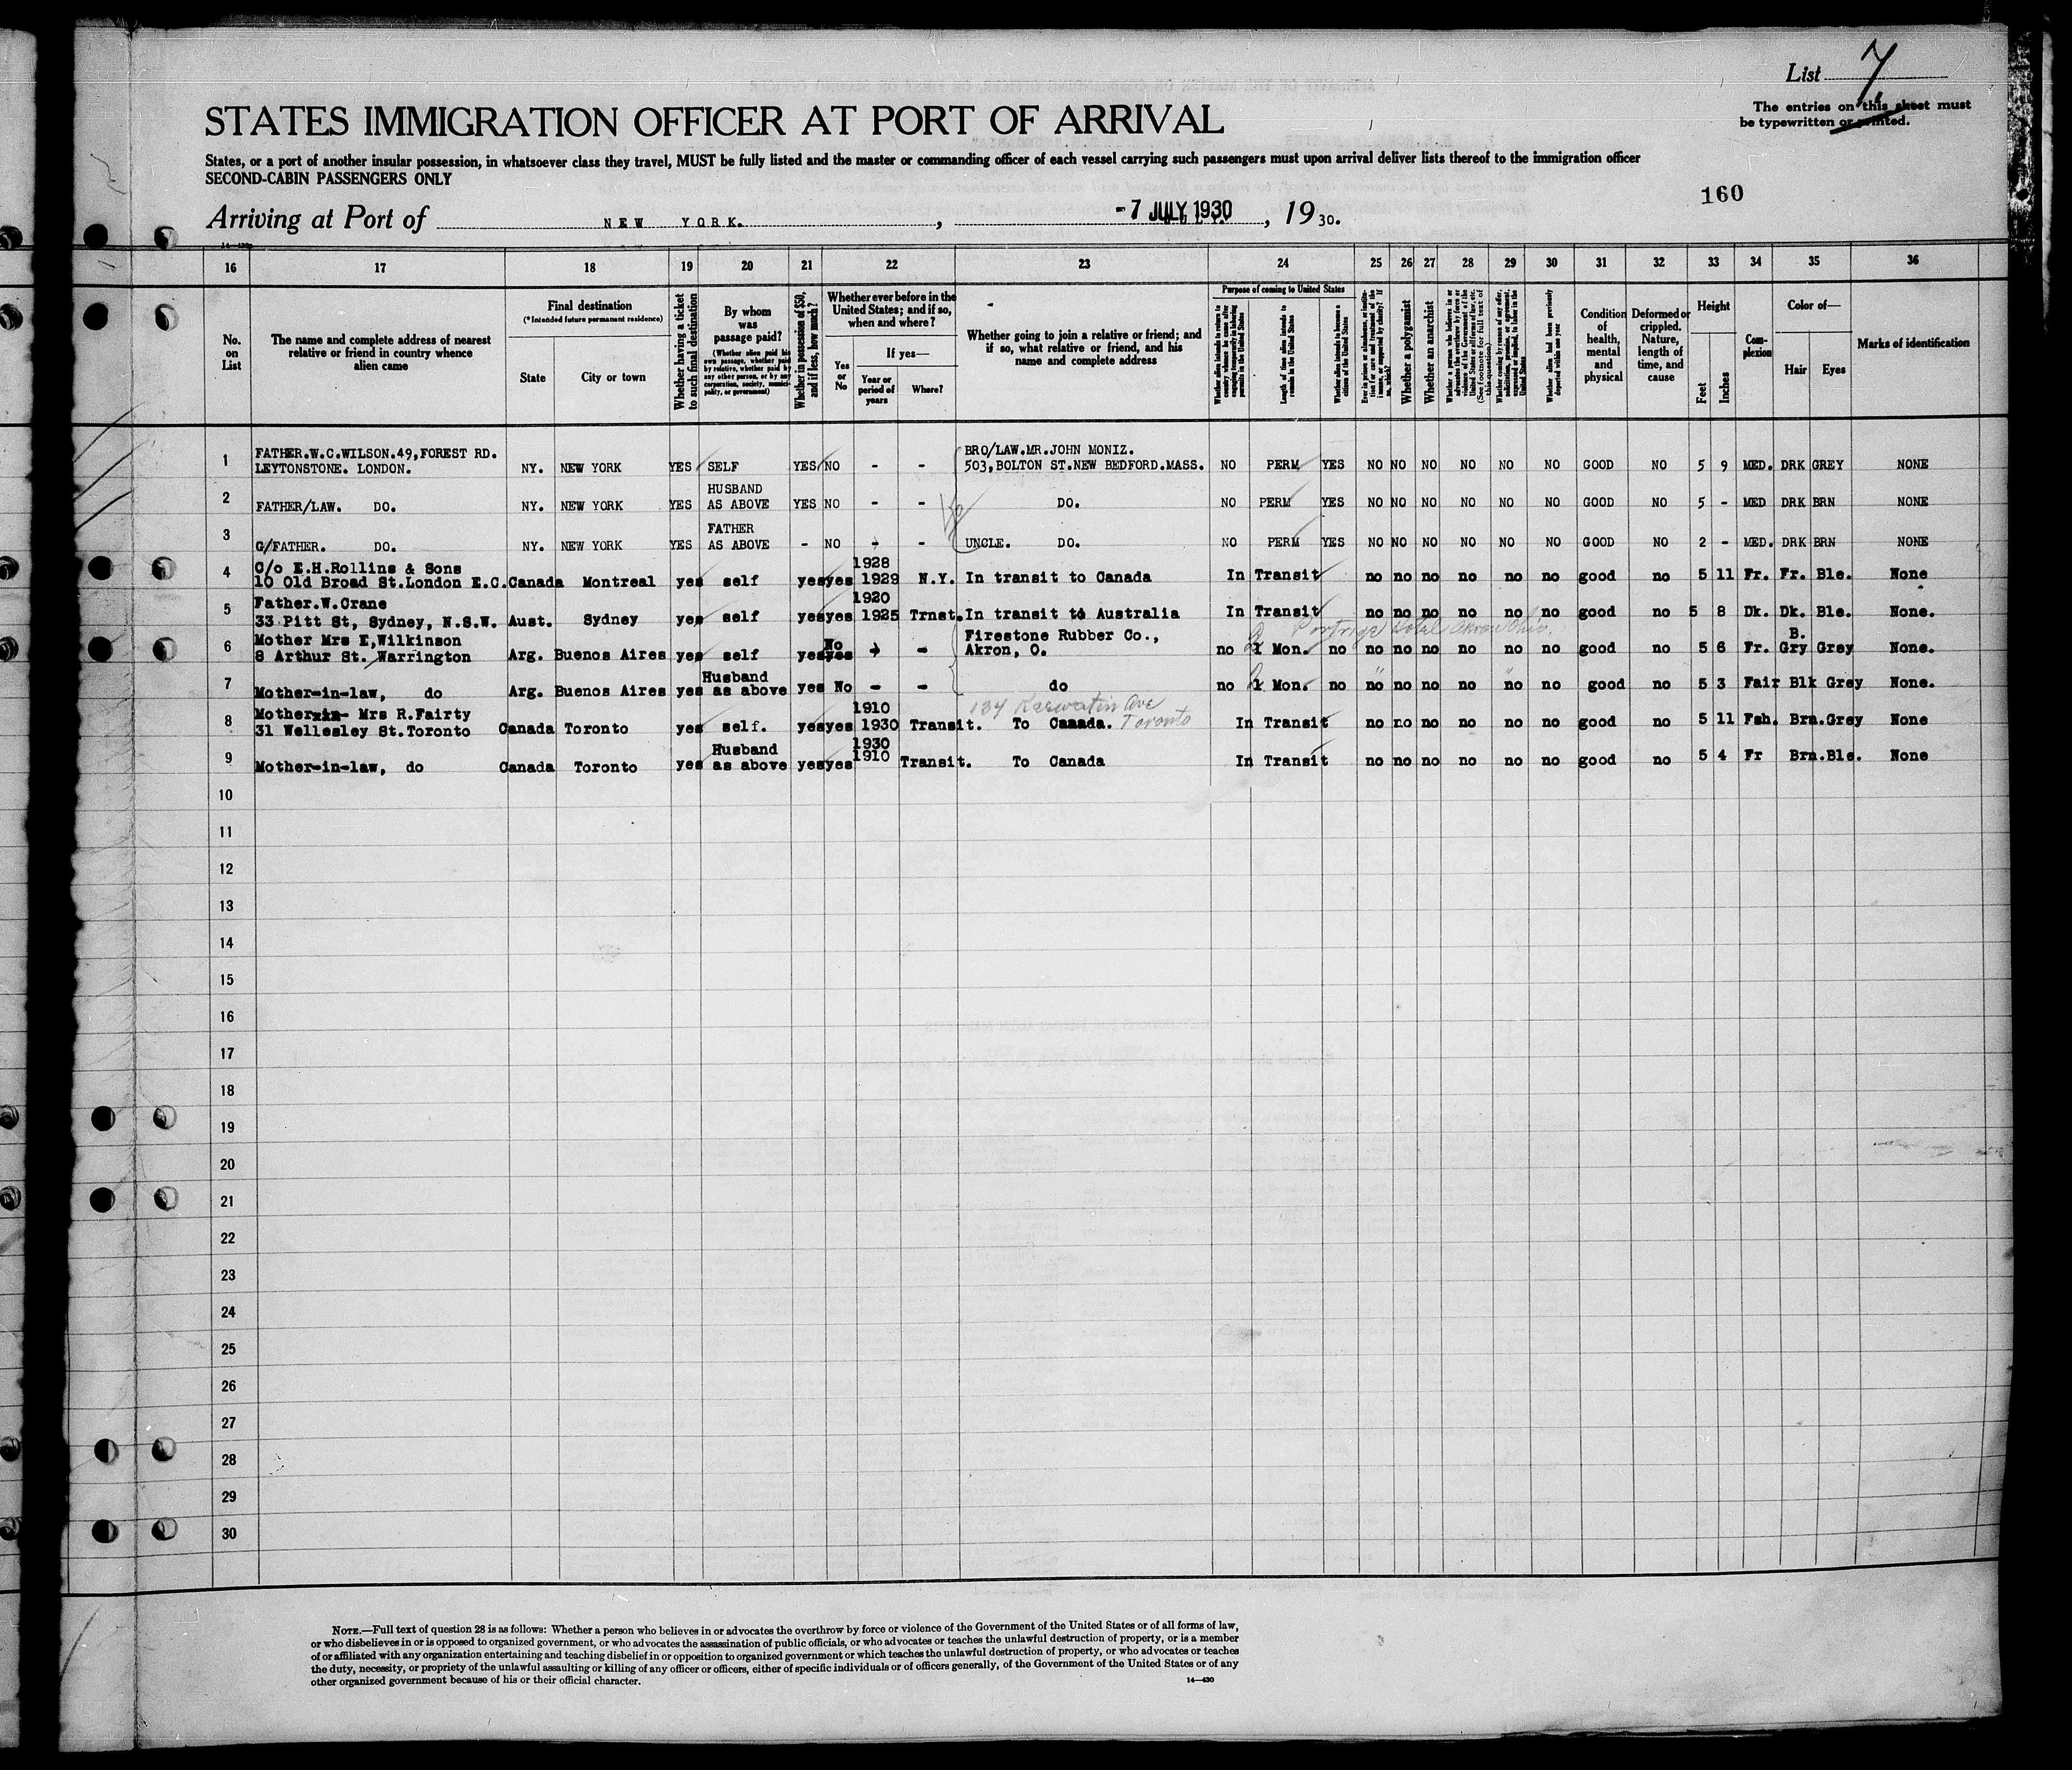 List 7
The entries on this sheet must
be typewritten or printed.
STATES IMMIGRATION OFFICER AT PORT OF ARRIVAL
States, or a port of another insular possession, in whatsoever class they travel, MUST be fully listed and the master or commanding officer of each vessel carrying such passengers must upon arrival deliver lists thereof to the immigration officer
SECOND-CABIN PASSENGERS ONLY
160
Arriving at Port of NEW YORK. , -7 JULY 1930 , 1930.
16 17 18 19 20 21 22 23 24 25 26 27 28 29 30 31 32 33 34 35 36
No. on List
The name and complete address of nearest relative or friend in country whence alien came
Final destination
(*Intended future permanent residence)
State
City or town
Whether having a ticket to such final destination
By whom was passage paid?
(Whether alien paid his own passage, whether paid by relative, whether paid by any other person, or by any corporation, society, municipality, or government)
Whether in possession of $50, and if less, how much?
Whether ever before in the United States; and if so, when and where?
Yes or No
If yes—
Year or period of years
Where?
Whether going to join a relative or friend; and if so, what relative or friend, and his name and complete address
Purpose of coming to United States
Length of time alien intends to remain in the United States
Whether alien intends to become a citizen of the United States
Whether a polygamist
Whether an anarchist
Whether alien had been previously deported within one year
Condition of health, mental and physical
Deformed or crippled. Nature, length of time, and cause
Height
Feet
Inches
Complexion
Color of—
Hair
Eyes
Marks of identification
1 FATHER.W.C.WILSON.49,FOREST RD. LEYTONSTONE. LONDON. NY. NEW YORK YES SELF YES NO - - BRO/LAW.MR.JOHN MONIZ. 503,BOLTON ST.NEW BEDFORD.MASS. NO PERM YES NO NO NO NO NO NO GOOD NO 5 9 MED. DRK GREY NONE
2 FATHER/LAW. DO. NY. NEW YORK YES HUSBAND AS ABOVE YES NO - - DO. NO PERM YES NO NO NO NO NO NO GOOD NO 5 - MED DRK BRN NONE
3 G/FATHER. DO. NY. NEW YORK YES FATHER AS ABOVE - NO - - UNCLE. DO. NO PERM YES NO NO NO NO NO NO GOOD NO 2 - MED. DRK BRN NONE
4 C/o E.H.Rollins & Sons 10 Old Broad St.London E.C. Canada Montreal yes self yes yes 1928 1929 N.Y. In transit to Canada In Transit no no no no no no good no 5 11 Fr. Fr. Ble. None
5 Father.W.Crane 33 Pitt St, Sydney, N.S.W. Aust. Sydney yes self yes yes 1920 1925 Trnst. In transit to Australia In Transit no no no no no no good no 5 8 Dk. Dk. Ble. None.
Hotel Akron Ohio.
6 Mother Mrs E,Wilkinson 8 Arthur St. Warrington Arg. Buenos Aires yes self yes No yes - - Firestone Rubber Co., Akron, O. no 1 Mon. no no no no no no no good no 5 6 Fr. B. Gry Grey None.
7 Mother-in-law, do Arg. Buenos Aires yes Husband as above yes No - - do no 1 Mon. no no no no no no no good no 5 3 Fair Blk Grey None.
134 Kaswatin Ave Toronto
8 Mother Mrs R.Fairty 31 Wellesley St.Toronto Canada Toronto yes self. yes yes 1910 1930 Transit. To Canada. In Transit no no no no no no good no 5 11 Fsh. Brn.Grey None
9 Mother-in-law, do Canada Toronto yes Husband as above yes yes 1930 1910 Transit. To Canada In Transit no no no no no no good no 5 4 Fr Brn.Ble. None
10
11
12
13
14
15
16
17
18
19
20
21
22
23
24
25
26
27
28
29
30
NOTE.—Full text of question 28 is as follows: Whether a person who believes in or advocates the overthrow by force or violence of the Government of the United States or of all forms of law,
or who disbelieves in or is opposed to organized government, or who advocates the assassination of public officials, or who advocates or teaches the unlawful destruction of property, or is a member
of or affiliated with any organization entertaining and teaching disbelief in or opposition to organized government or which teaches the unlawful destruction of property, or who advocates or teaches
the duty, necessity, or propriety of the unlawful assaulting or killing of any officer or officers, either of specific individuals or of officers generally, of the Government of the United States or of any
other organized government because of his or their official character.
14—430